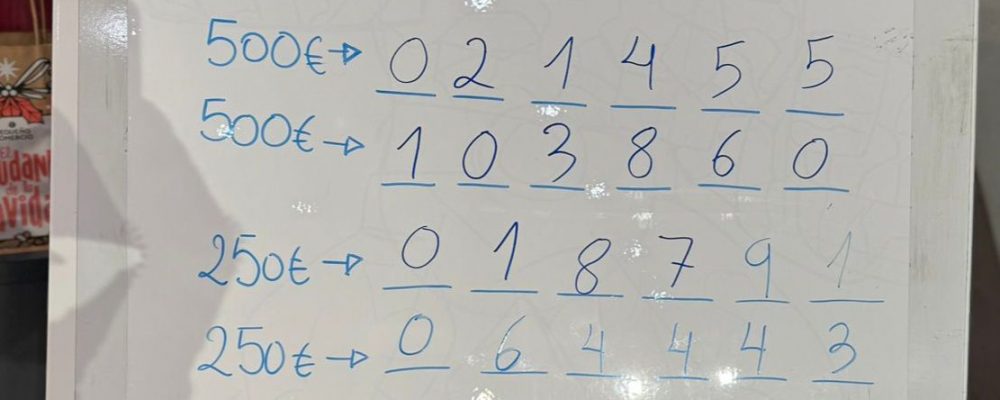 500€→ 0 2 1 4 5 5
500€→ 1 0 3 8 6 0
250€→ 0 1 8 7 9 1
250€→ 0 6 4 4 4 3